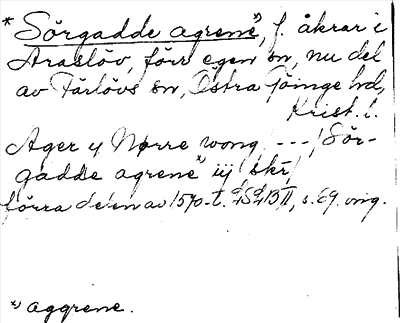 * Sörgadde agrene*), f. åkrar i
Araslöv, förr egen sn, nu del
av Färlövs sn, Östra Göinge hd,
Krist. l.
Ager y Nørre wong --- / Sör-
gadde agrene*) iij skr/
förra delen av 1570-t. s. 69. orig.
*) aggrene.